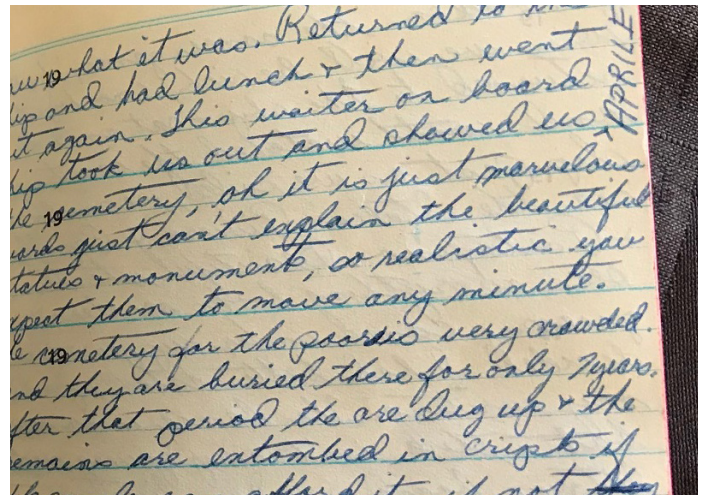 what it was. Returned to the
19
and had lunch & then went
again. This waiter on board
took us out and showed us
APRILE
cemetery, oh it is just marvelous
19
just can't explain the beautiful
& monuments, so realistic you
them to move any minute.
cemetery for the poor is very crowded.
19
they are buried there for only 7 years.
that period the are dug up & the
are entombed in cripts if
afford it, if not